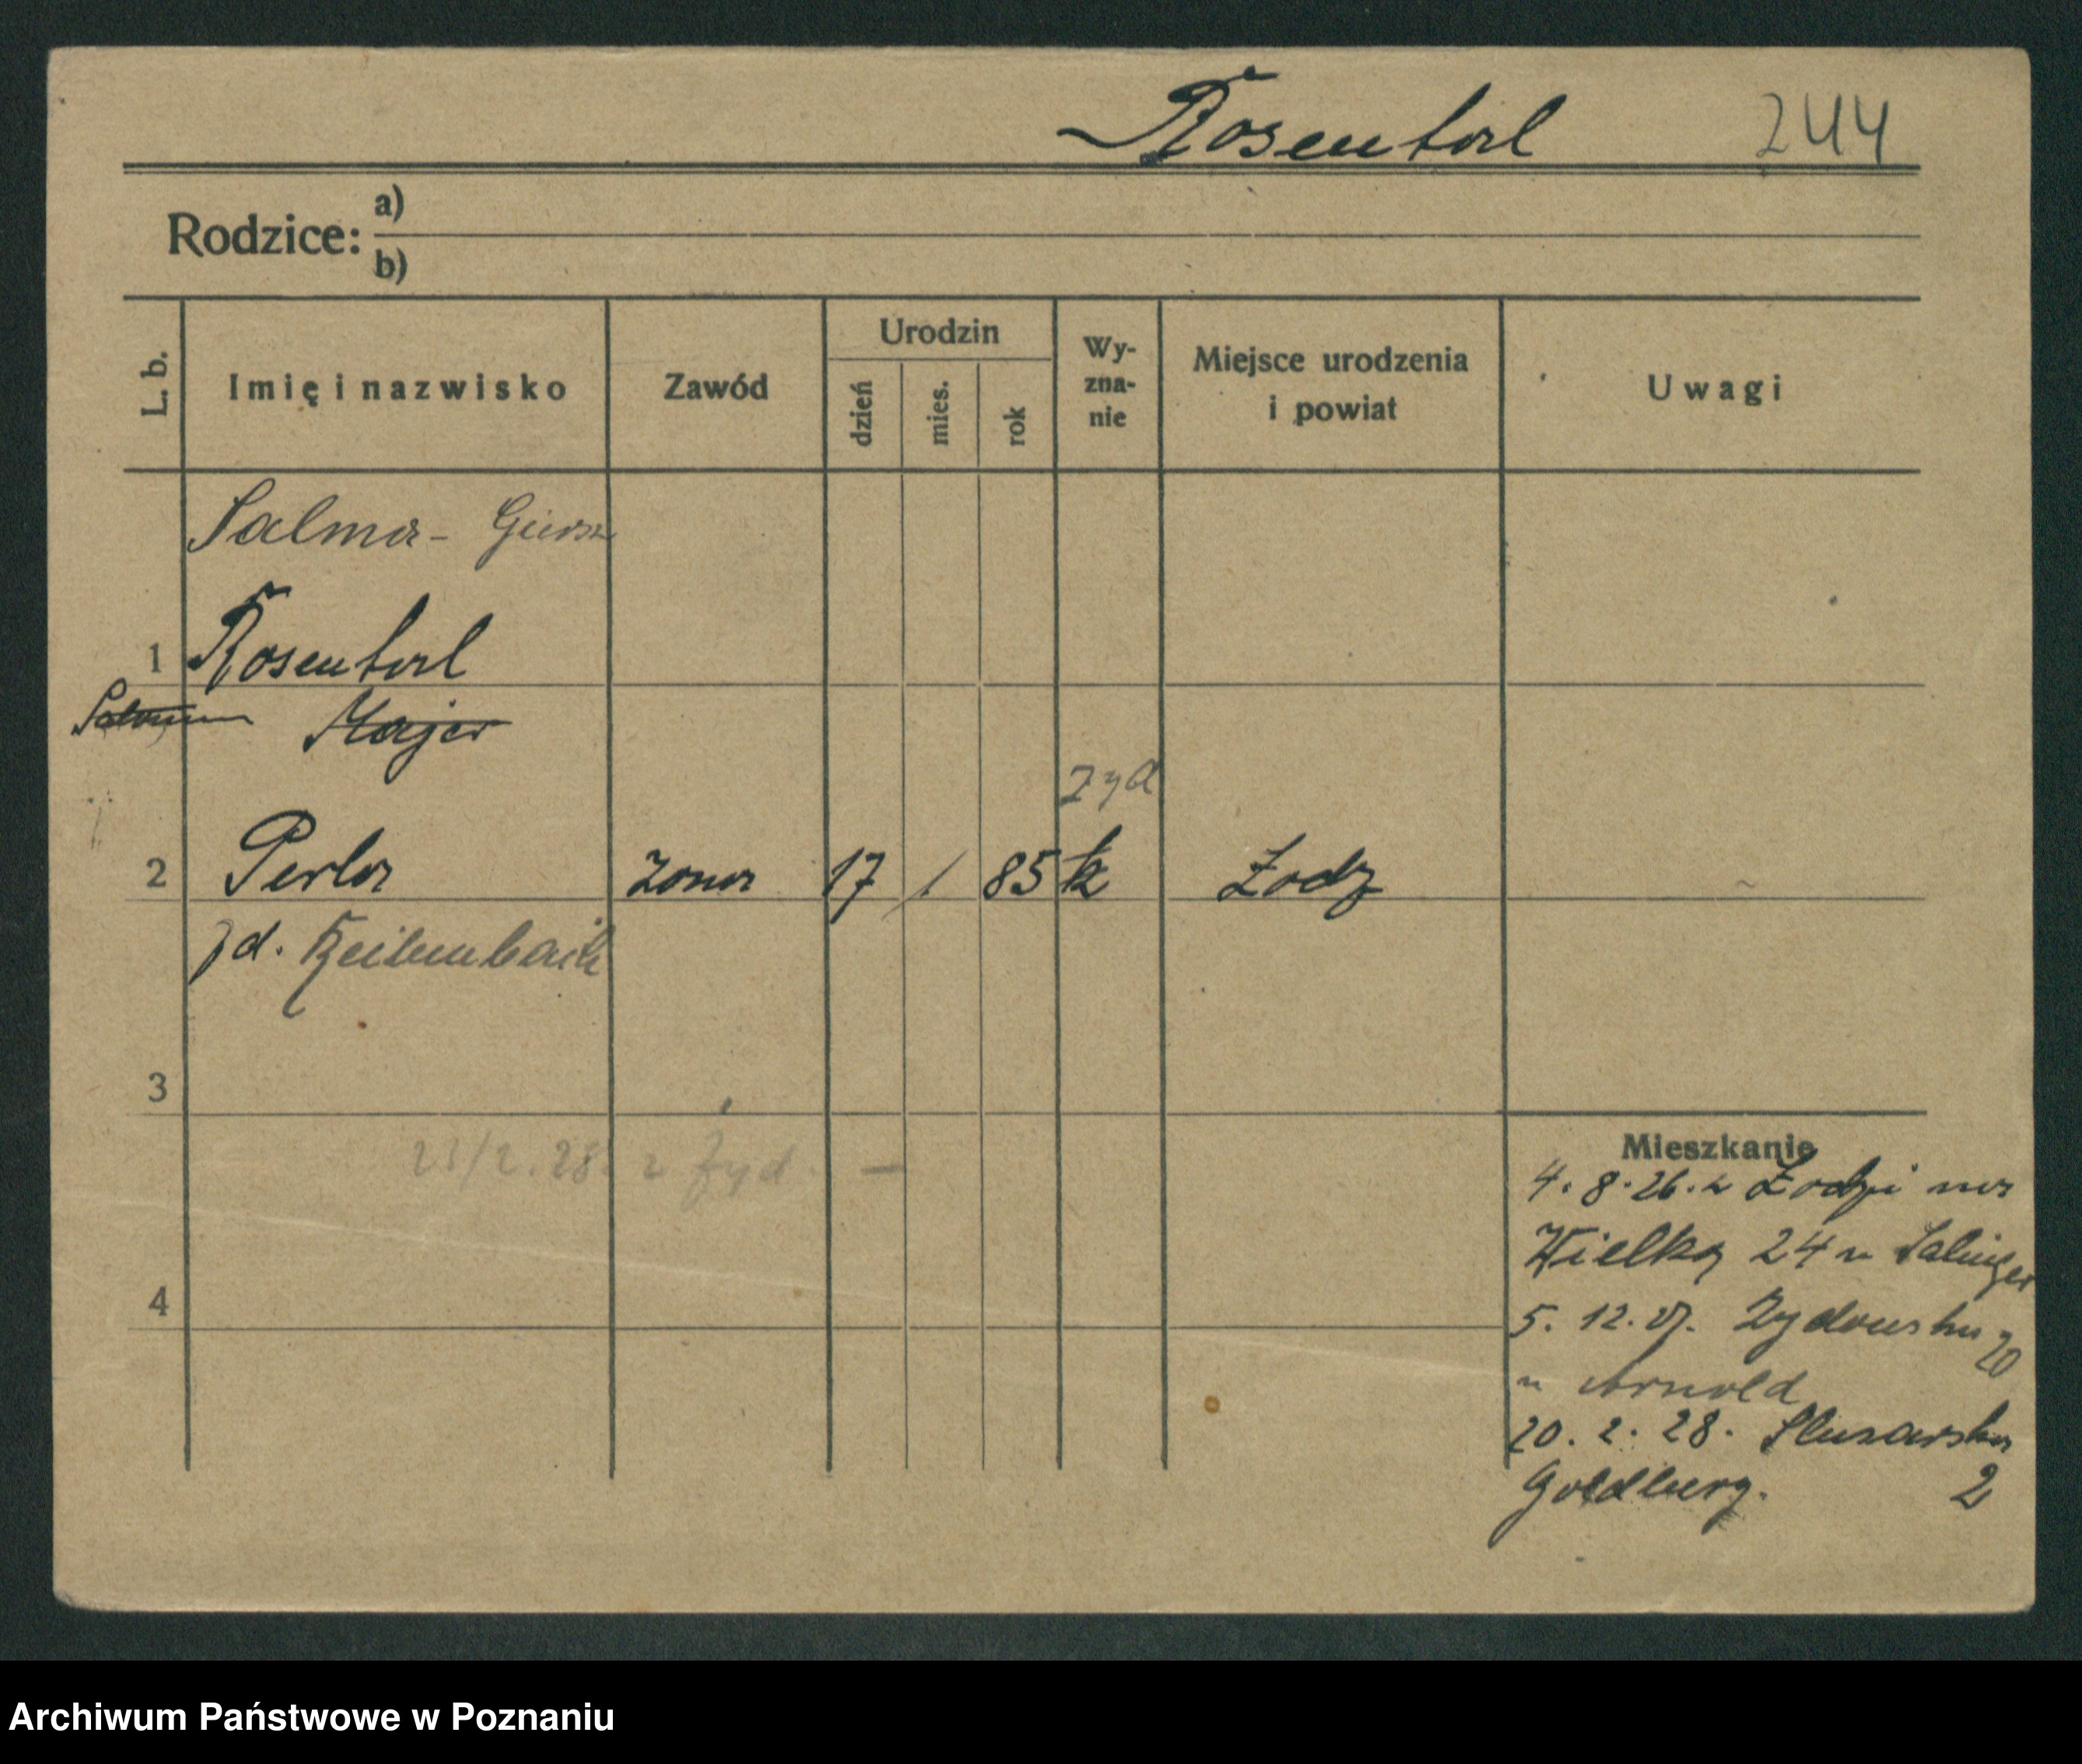 Rosental 244
Rodzice: a)
b)
L. b. Imię i nazwisko Zawód Urodzin dzień mies. rok Wy-zna-nie Miejsce urodzenia i powiat Uwagi
Salma - Giersz
1 Rosental
Majer
żyd
2 Perla zona 17 / 85 k Łodz
3
23/2.28. z Żyd. -
Mieszkanie
4. 8. 26. z Łodzi na
Wielką 24 u Salinger
4
5. 12. 27. Zydowska 20
u Arnold
20. 2. 28. Slusarska
Goldberg. 2
Archiwum Państwowe w Poznaniu